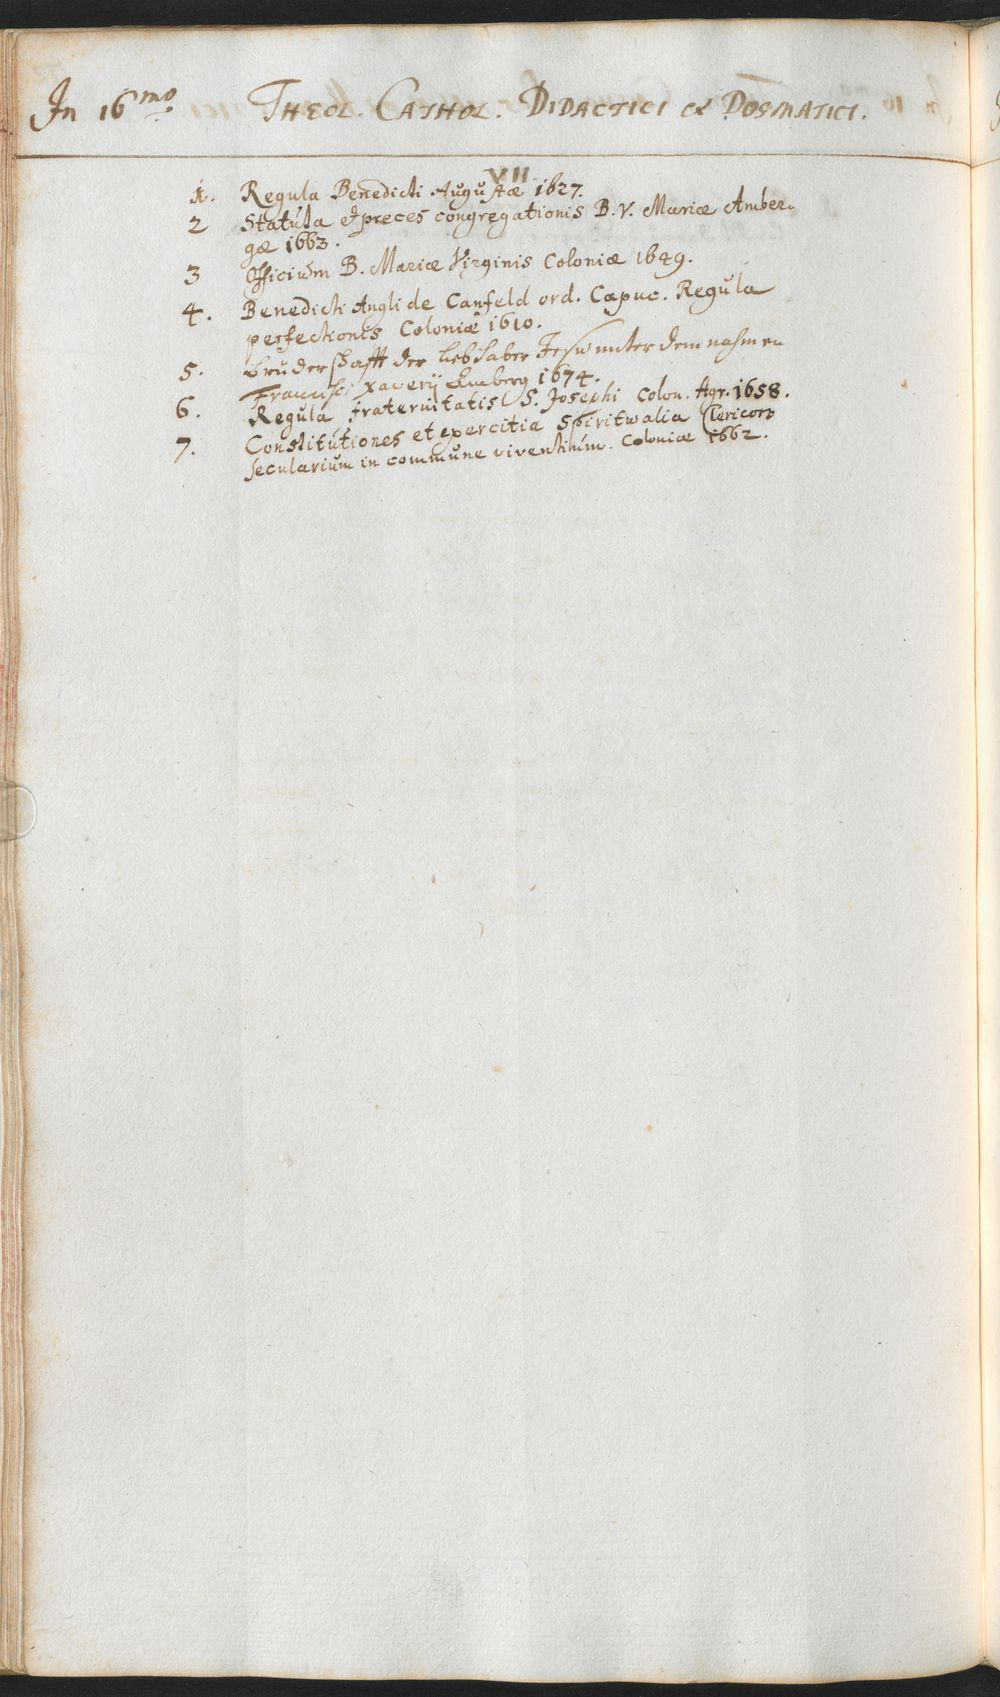 In 16mo. THEOL. CATHOL. DIDACTICI & DOGMATICI.
VII
1. Regula Benedicti Augustæ 1627.
2 Statuta et preces congregationis B. V. Mariæ Amber-
gæ 1663.
3 Officium B. Mariæ Virginis Coloniæ 1649.
4. Benedicti Angli de Canfeld ord. Capuc. Regula
perfectionis Coloniæ 1610.
5. Bruderschafft der liebhaber Jesu unter dem nahmen
Francisci Xaverij Amberg 1674.
6. Regula fraternitatis S. Josephi Colon. Agr. 1658.
7. Constitutiones et exercitia Spiritualia Clericorv
secularium in commune viventium. Coloniæ 1662.